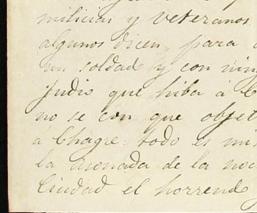 milicias y veteranos
algunos dicen, para
un soldad y con
judio que hiba á
no se con que objet
á Chagre. todo es
la monada de la noc
Ciudad el horrendo